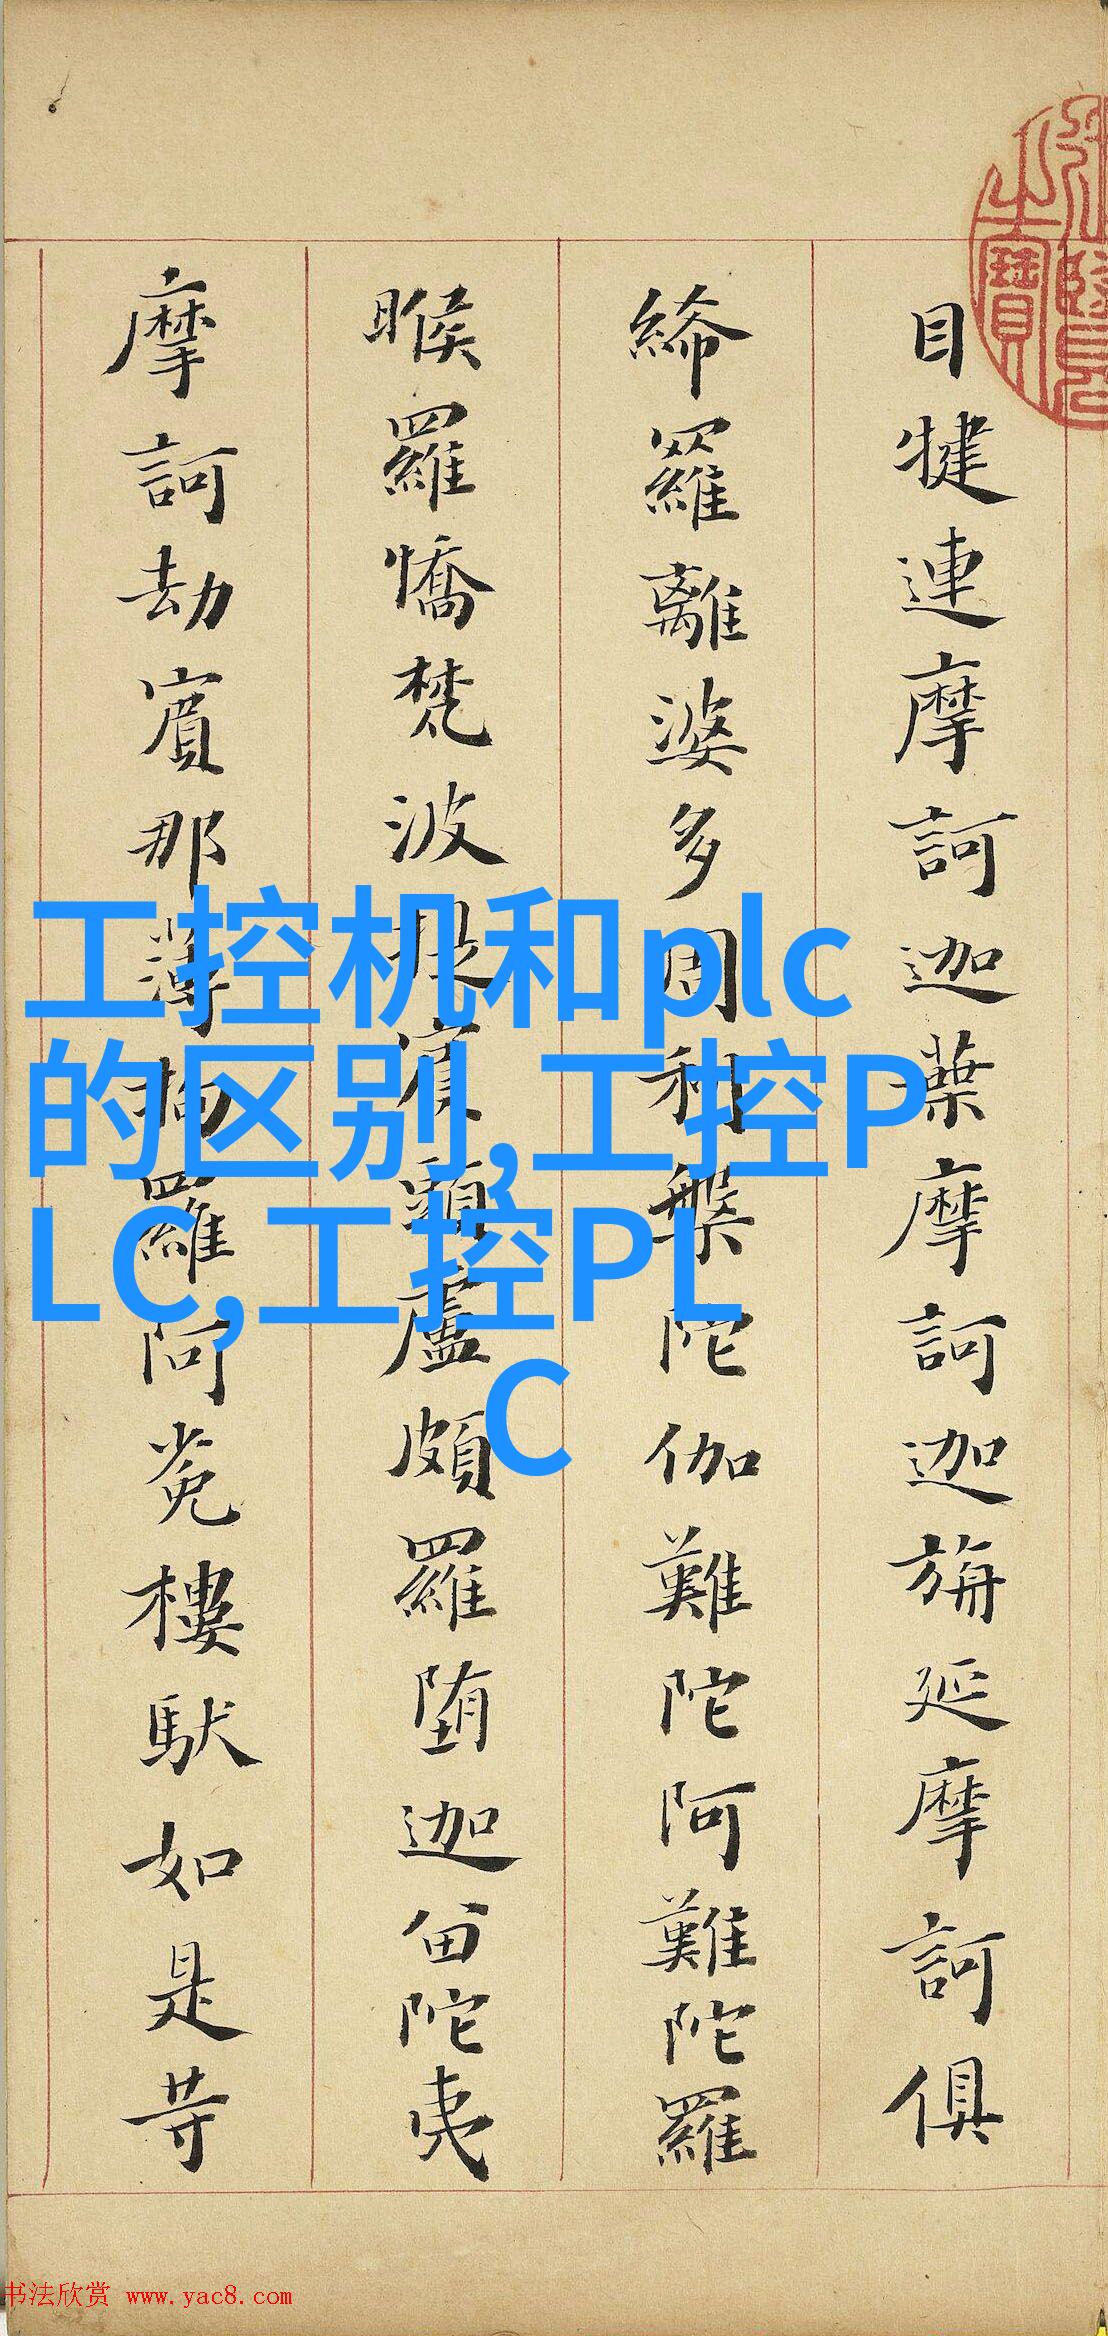 目犍連摩訶迦葉摩訶迦旃延摩訶俱
絺羅離婆多周利槃陀伽難陀阿難陀羅
睺羅憍梵波提賓頭盧頗羅堕迦留陀夷
摩訶劫賓那薄拘羅阿㝹樓馱如是等
工控机和plc
的区别,工控P
LC,工控PL
C
书法欣赏 www.yac8.com